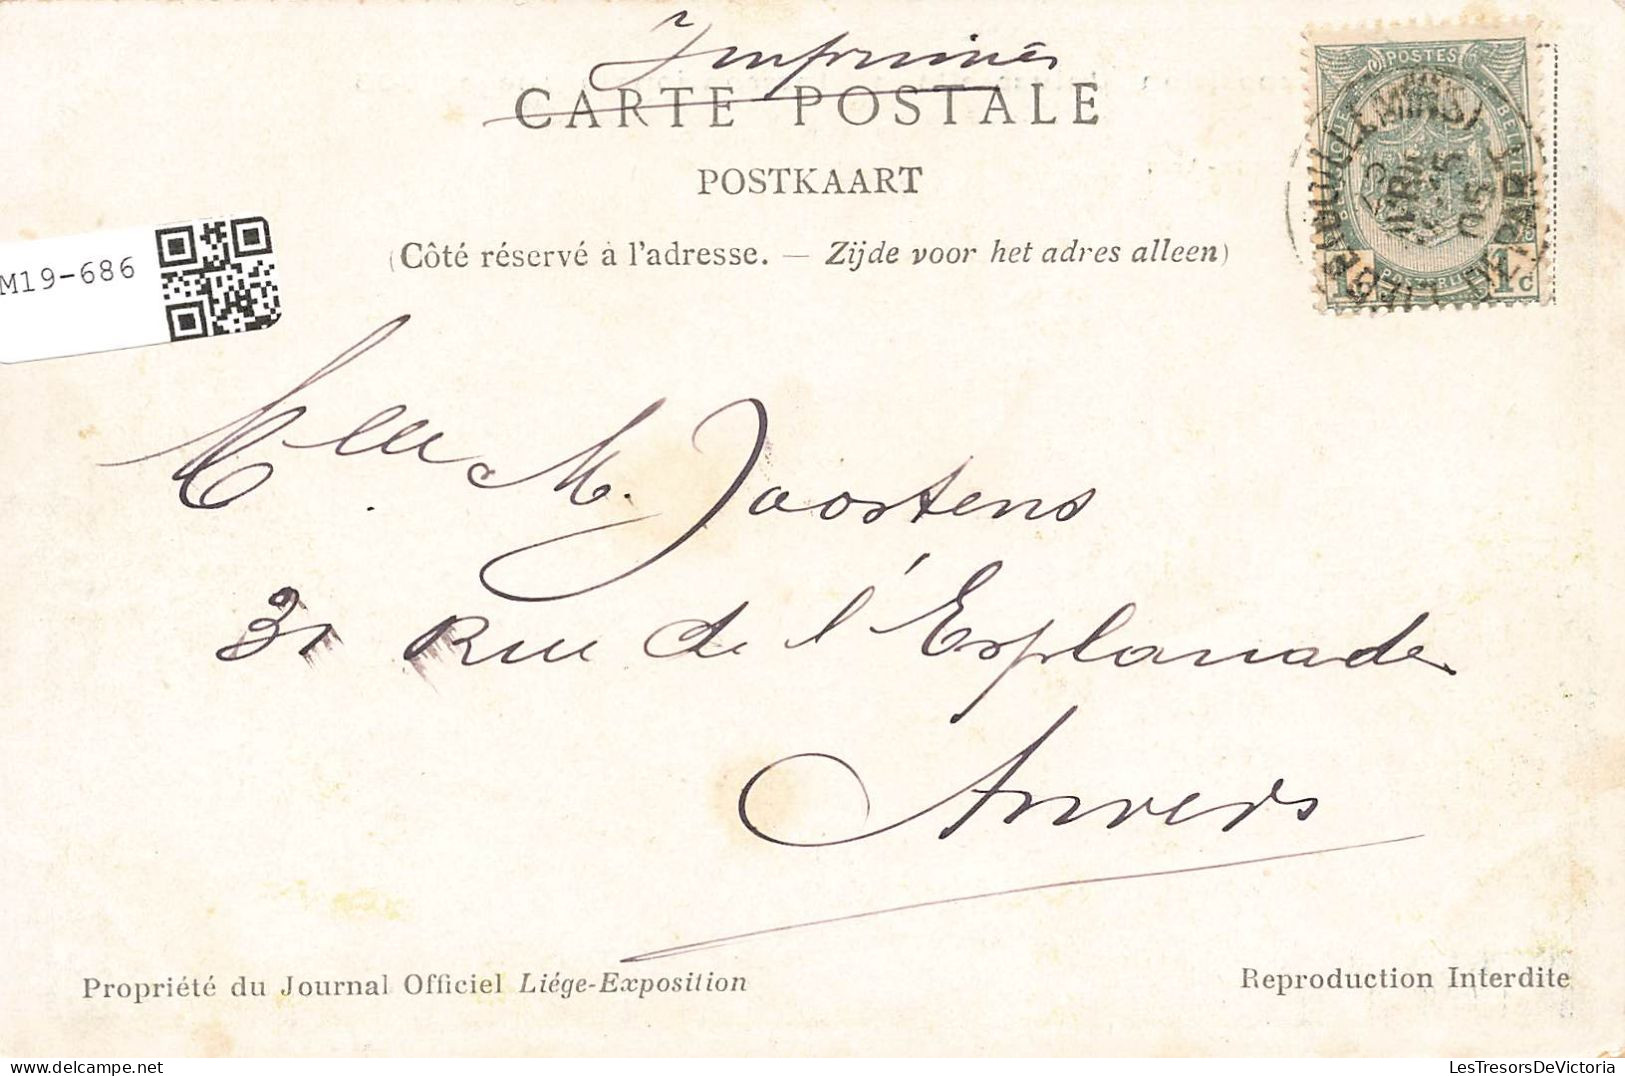 Imprimés
CARTE POSTALE
POSTKAART
(Côté réservé à l'adresse. — Zijde voor het adres alleen)
M19-686
POSTES
1 c
Mlle M. Joostens
31 Rue de l'Esplanade
Anvers
Propriété du Journal Officiel Liége-Exposition
Reproduction Interdite
LesTresorsDeVictoria